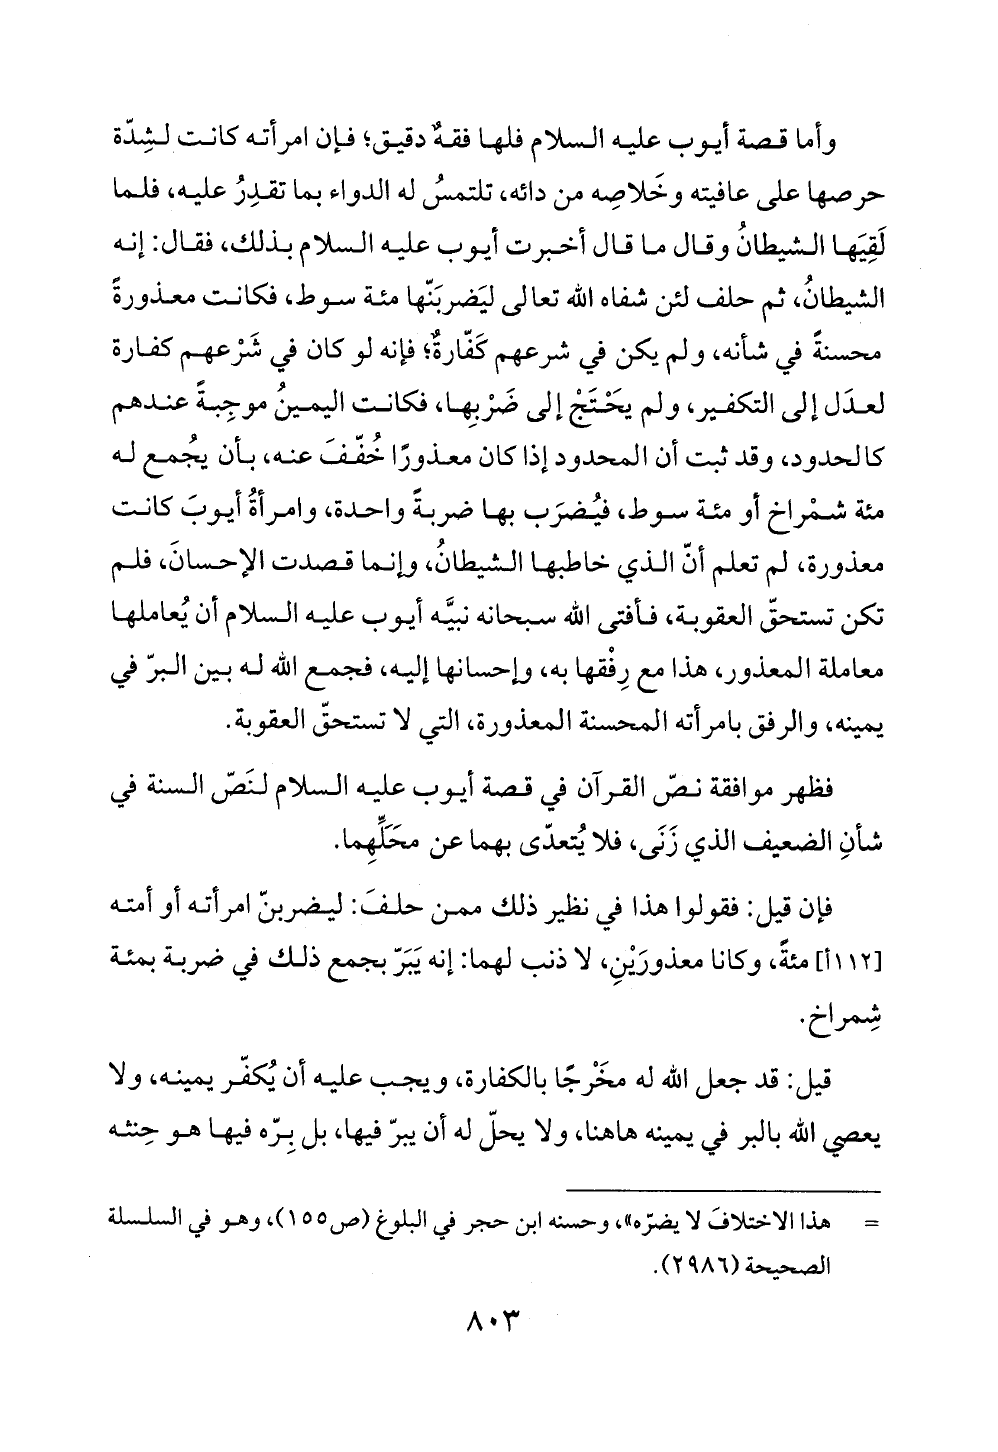 وأما قصة أيوب عليه السلام فلها فقهٌ دقيق؛ فإن امرأته كانت لشِدّة
حرصها على عافيته وخَلاصِه من دائه، تلتمسُ له الدواء بما تقدِرُ عليه، فلما
لَقِيَها الشيطانُ وقال ما قال أخبرت أيوب عليه السلام بذلك، فقال: إنه
الشيطانُ، ثم حلف لئن شفاه الله تعالى ليَضربَنّها مئة سوط، فكانت معذورةً
محسنةً في شأنه، ولم يكن في شرعهم كَفّارةٌ؛ فإنه لو كان في شَرْعهم كفارة
لعدَل إلى التكفير، ولم يحْتَجْ إلى ضَرْبِها، فكانت اليمينُ موجِبةً عندهم
كالحدود، وقد ثبت أن المحدود إذا كان معذورًا خُفّفَ عنه، بأن يجُمع له
مئة شمْراخ أو مئة سوط، فيُضرَب بها ضربةً واحدة، وامرأةُ أيوبَ كانت
معذورة، لم تعلم أنّ الذي خاطبها الشيطانُ، وإنما قصدت الإحسانَ، فلم
تكن تستحقّ العقوبة، فأفتى الله سبحانه نبيَّه أيوب عليه السلام أن يُعاملها
معاملة المعذور، هذا مع رِفْقها به، وإحسانها إليه، فجمع الله له بين البرّ في
يمينه، والرفق بامرأته المحسنة المعذورة، التي لا تستحقّ العقوبة.
فظهر موافقة نصّ القرآن في قصة أيوب عليه السلام لنَصّ السنة في
شأنِ الضعيف الذي زَنَى، فلا يُتعدّى بهما عن محَلِّهما.
فإن قيل: فقولوا هذا في نظير ذلك ممن حلفَ: ليضربنّ امرأته أو أمته
[١١٢أ] مئةً، وكانا معذورَيْنِ، لا ذنب لهما: إنه يَبَرّ بجمع ذلك في ضربة بمئة
شِمراخ.
قيل: قد جعل الله له مخَرْجًا بالكفارة، ويجب عليه أن يُكفّر يمينه، ولا
يعصي الله بالبر في يمينه هاهنا، ولا يحلّ له أن يبرّ فيها، بل بِرّه فيها هو حِنثه
= هذا الاختلافَ لا يضرّه»، وحسنه ابن حجر في البلوغ (ص١٥٥)، وهو في السلسلة
الصحيحة (٢٩٨٦).
٨٠٣